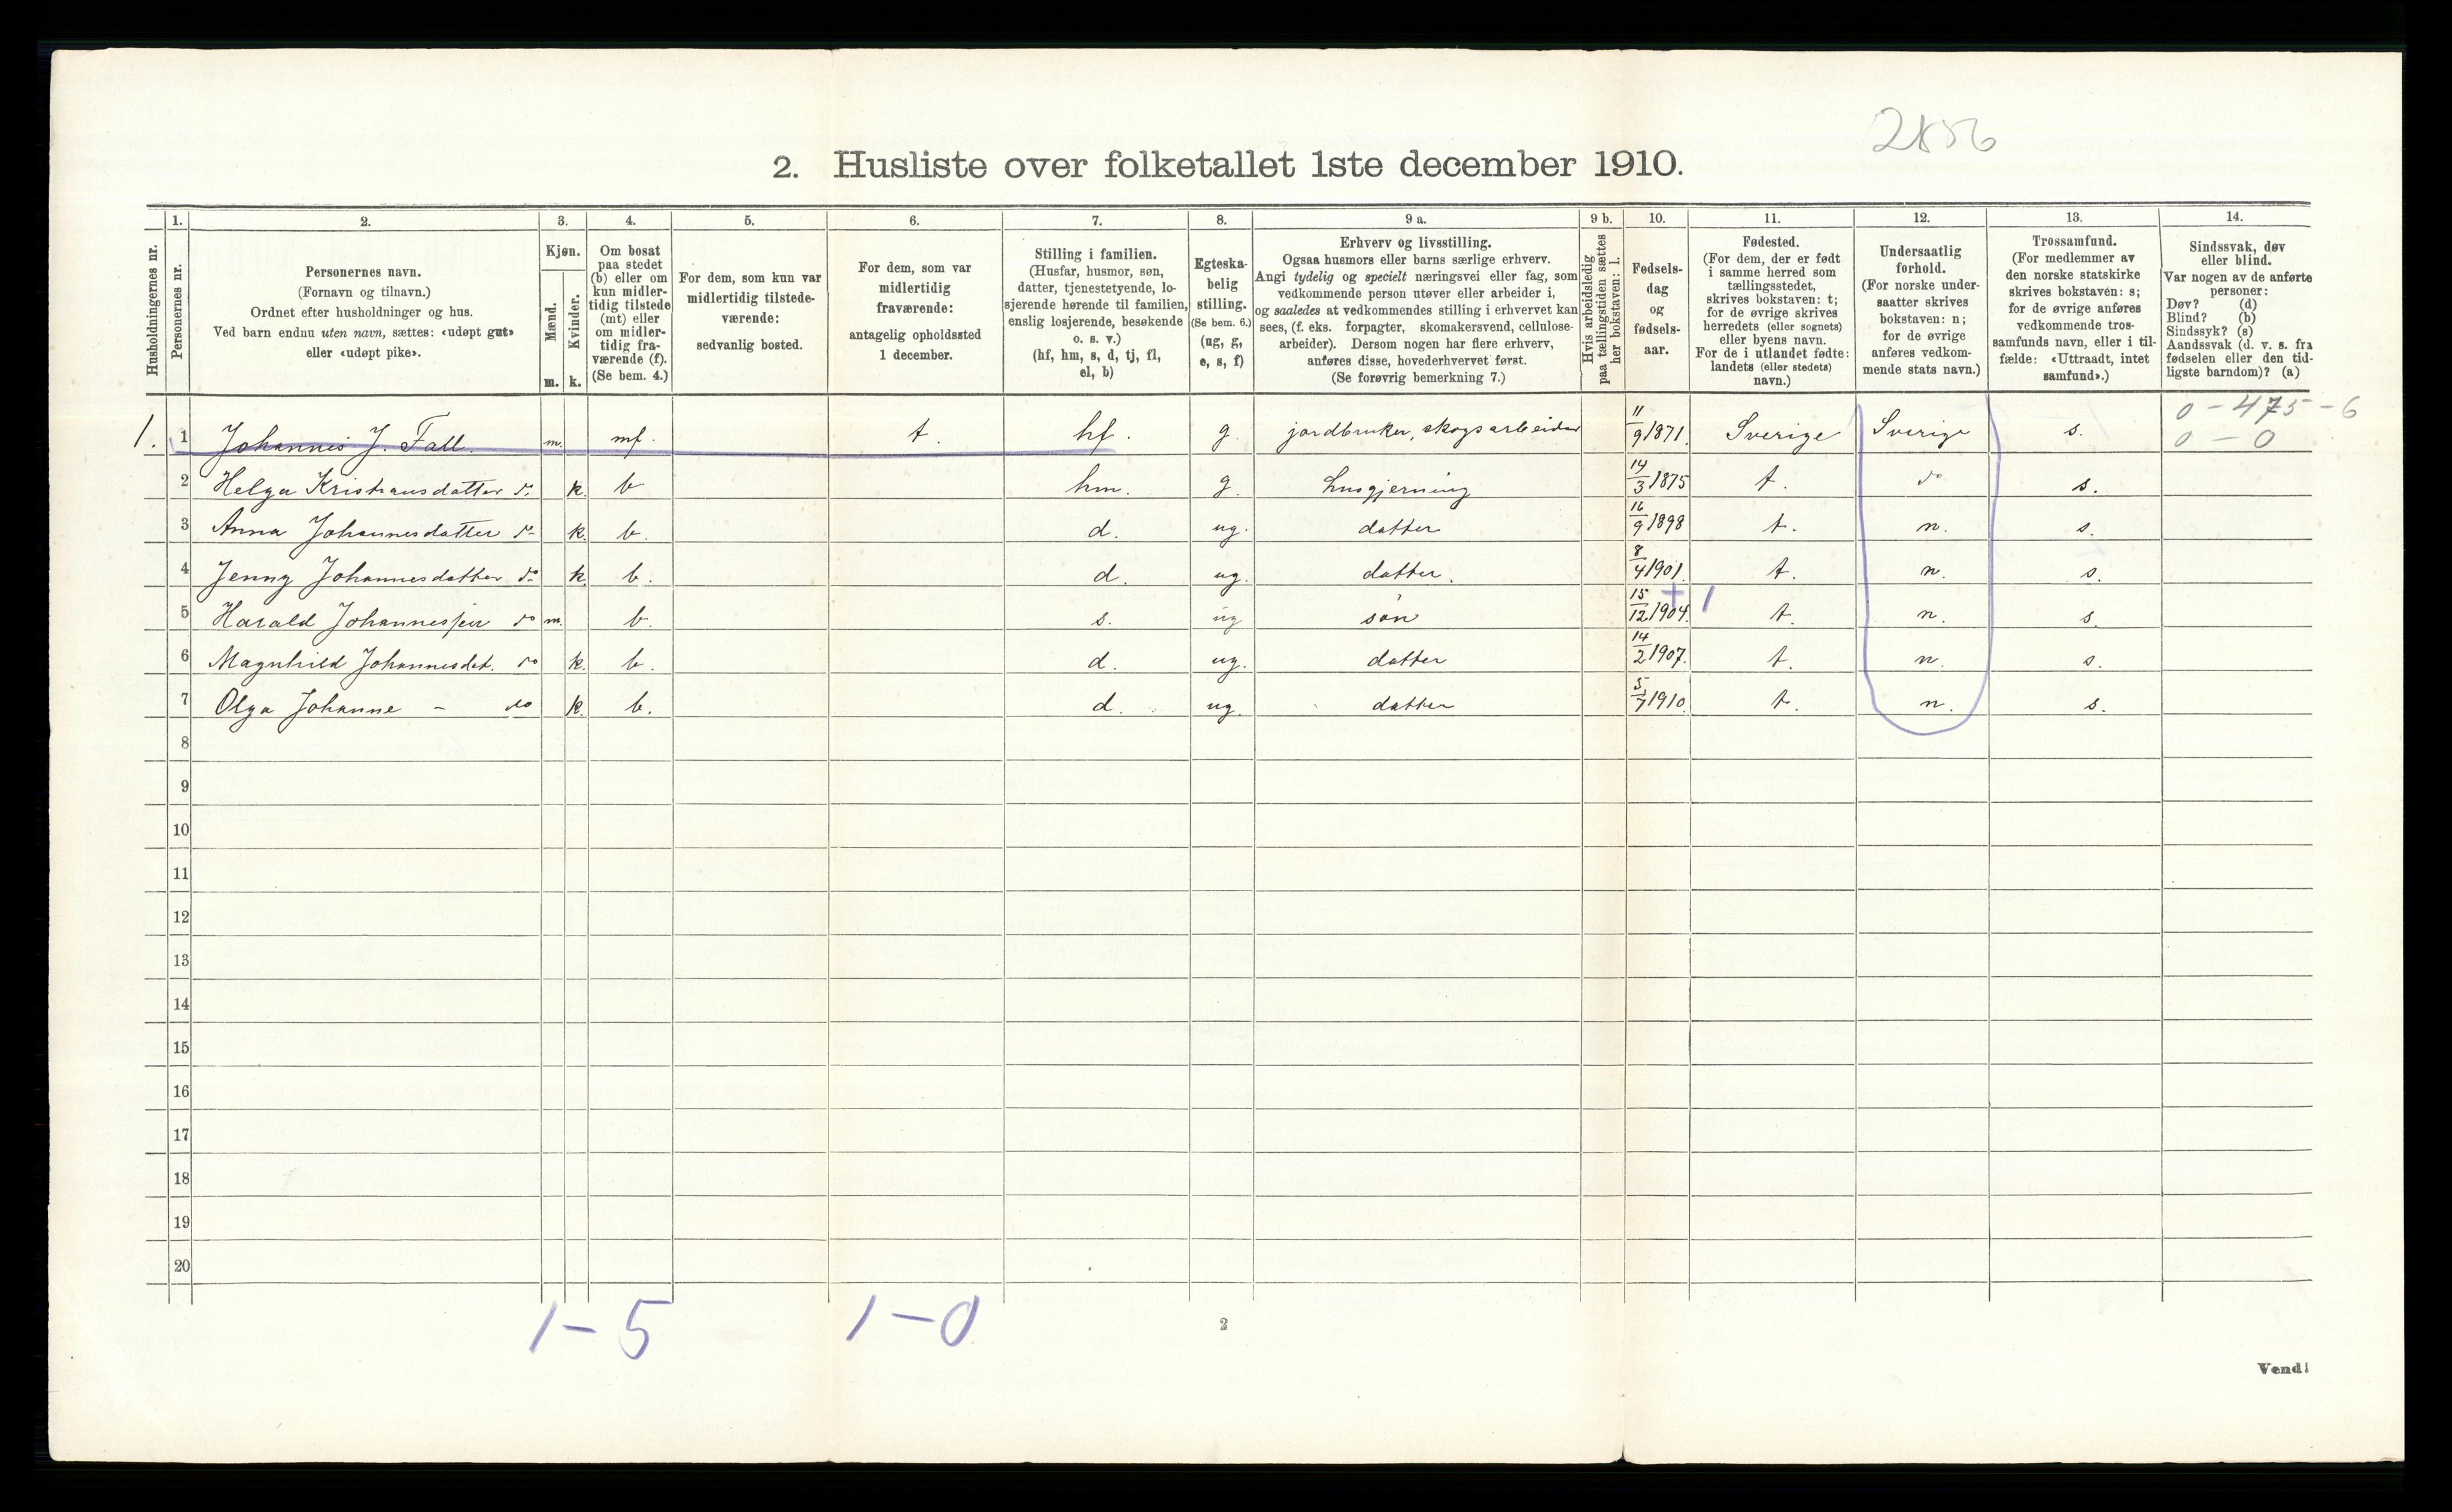 2856
2. Husliste over folketallet 1ste december 1910.
Husholdningernes nr.
1.
Personernes nr.
2.
Personernes navn.
(Fornavn og tilnavn.)
Ordnet efter husholdninger og hus.
Ved barn endnu uten navn, sættes: «udøpt gut»
eller «udøpt pike».
3.
Kjøn.
Mænd.
Kvinder.
m. k.
4.
Om bosat
paa stedet
(b) eller om
kun midler-
tidig tilstede
(mt) eller
om midler-
tidig fra-
værende (f).
(Se bem. 4.)
5.
For dem, som kun var
midlertidig tilstede-
værende:
sedvanlig bosted.
6.
For dem, som var
midlertidig
fraværende:
antagelig opholdssted
1 december.
7.
Stilling i familien.
(Husfar, husmor, søn,
datter, tjenestetyende, lo-
sjerende hørende til familien,
enslig losjerende, besøkende
o. s. v.)
(hf, hm, s, d, tj, fl,
el, b)
8.
Egteska-
belig
stilling.
(Se bem. 6.)
(ug, g,
e, s, f)
9 a.
Erhverv og livsstilling.
Ogsaa husmors eller barns særlige erhverv.
Angi tydelig og specielt næringsvei eller fag, som
vedkommende person utøver eller arbeider i,
og saaledes at vedkommendes stilling i erhvervet kan
sees, (f. eks. forpagter, skomakersvend, cellulose-
arbeider). Dersom nogen har flere erhverv,
anføres disse, hovederhvervet først.
(Se forøvrig bemerkning 7.)
9 b.
Hvis arbeidsledig
paa tællingstiden sættes
her bokstaven: l.
10.
Fødsels-
dag
og
fødsels-
aar.
11.
Fødested.
(For dem, der er født
i samme herred som
tællingsstedet,
skrives bokstaven: t;
for de øvrige skrives
herredets (eller sognets)
eller byens navn.
For de i utlandet fødte:
landets (eller stedets)
navn.)
12.
Undersaatlig
forhold.
(For norske under-
saatter skrives
bokstaven: n;
for de øvrige
anføres vedkom-
mende stats navn.)
13.
Trossamfund.
(For medlemmer av
den norske statskirke
skrives bokstaven: s;
for de øvrige anføres
vedkommende tros-
samfunds navn, eller i til-
fælde: «Uttraadt, intet
samfund».)
14.
Sindssvak, døv
eller blind.
Var nogen av de anførte
personer:
Døv? (d)
Blind? (b)
Sindssyk? (s)
Aandssvak (d. v. s. fra
fødselen eller den tid-
ligste barndom)? (a)
0 - 475 - 6
0 - 0
1. 1 Johannis J. Fall. m. mf. t. hf. g. jordbruker, skogsarbeider 11/9 1871. Sverige Sverige s.
2 Helga Kristiansdatter do k. b hm. g. husgjerning 14/3 1875 t. do s.
3 Anna Johannesdatter do k. b. d. ug. datter 16/9 1898 t. n. s.
4 Jenny Johannesdatter do k. b. d. ug. datter. 8/4 1901. t. n. s.
+ 1
5 Harald Johannessen do m. b. s. ug søn 15/12 1904. t. n. s.
6 Magnhild Johannesdat. do k. b. d. ug. datter 14/2 1907. t. n. s.
7 Olga Johanne - do k. b. d. ug. datter 5/7 1910. t. n. s.
8
9
10
11
12
13
14
15
16
17
18
19
20
1 - 5 1 - 0
2
Vend!